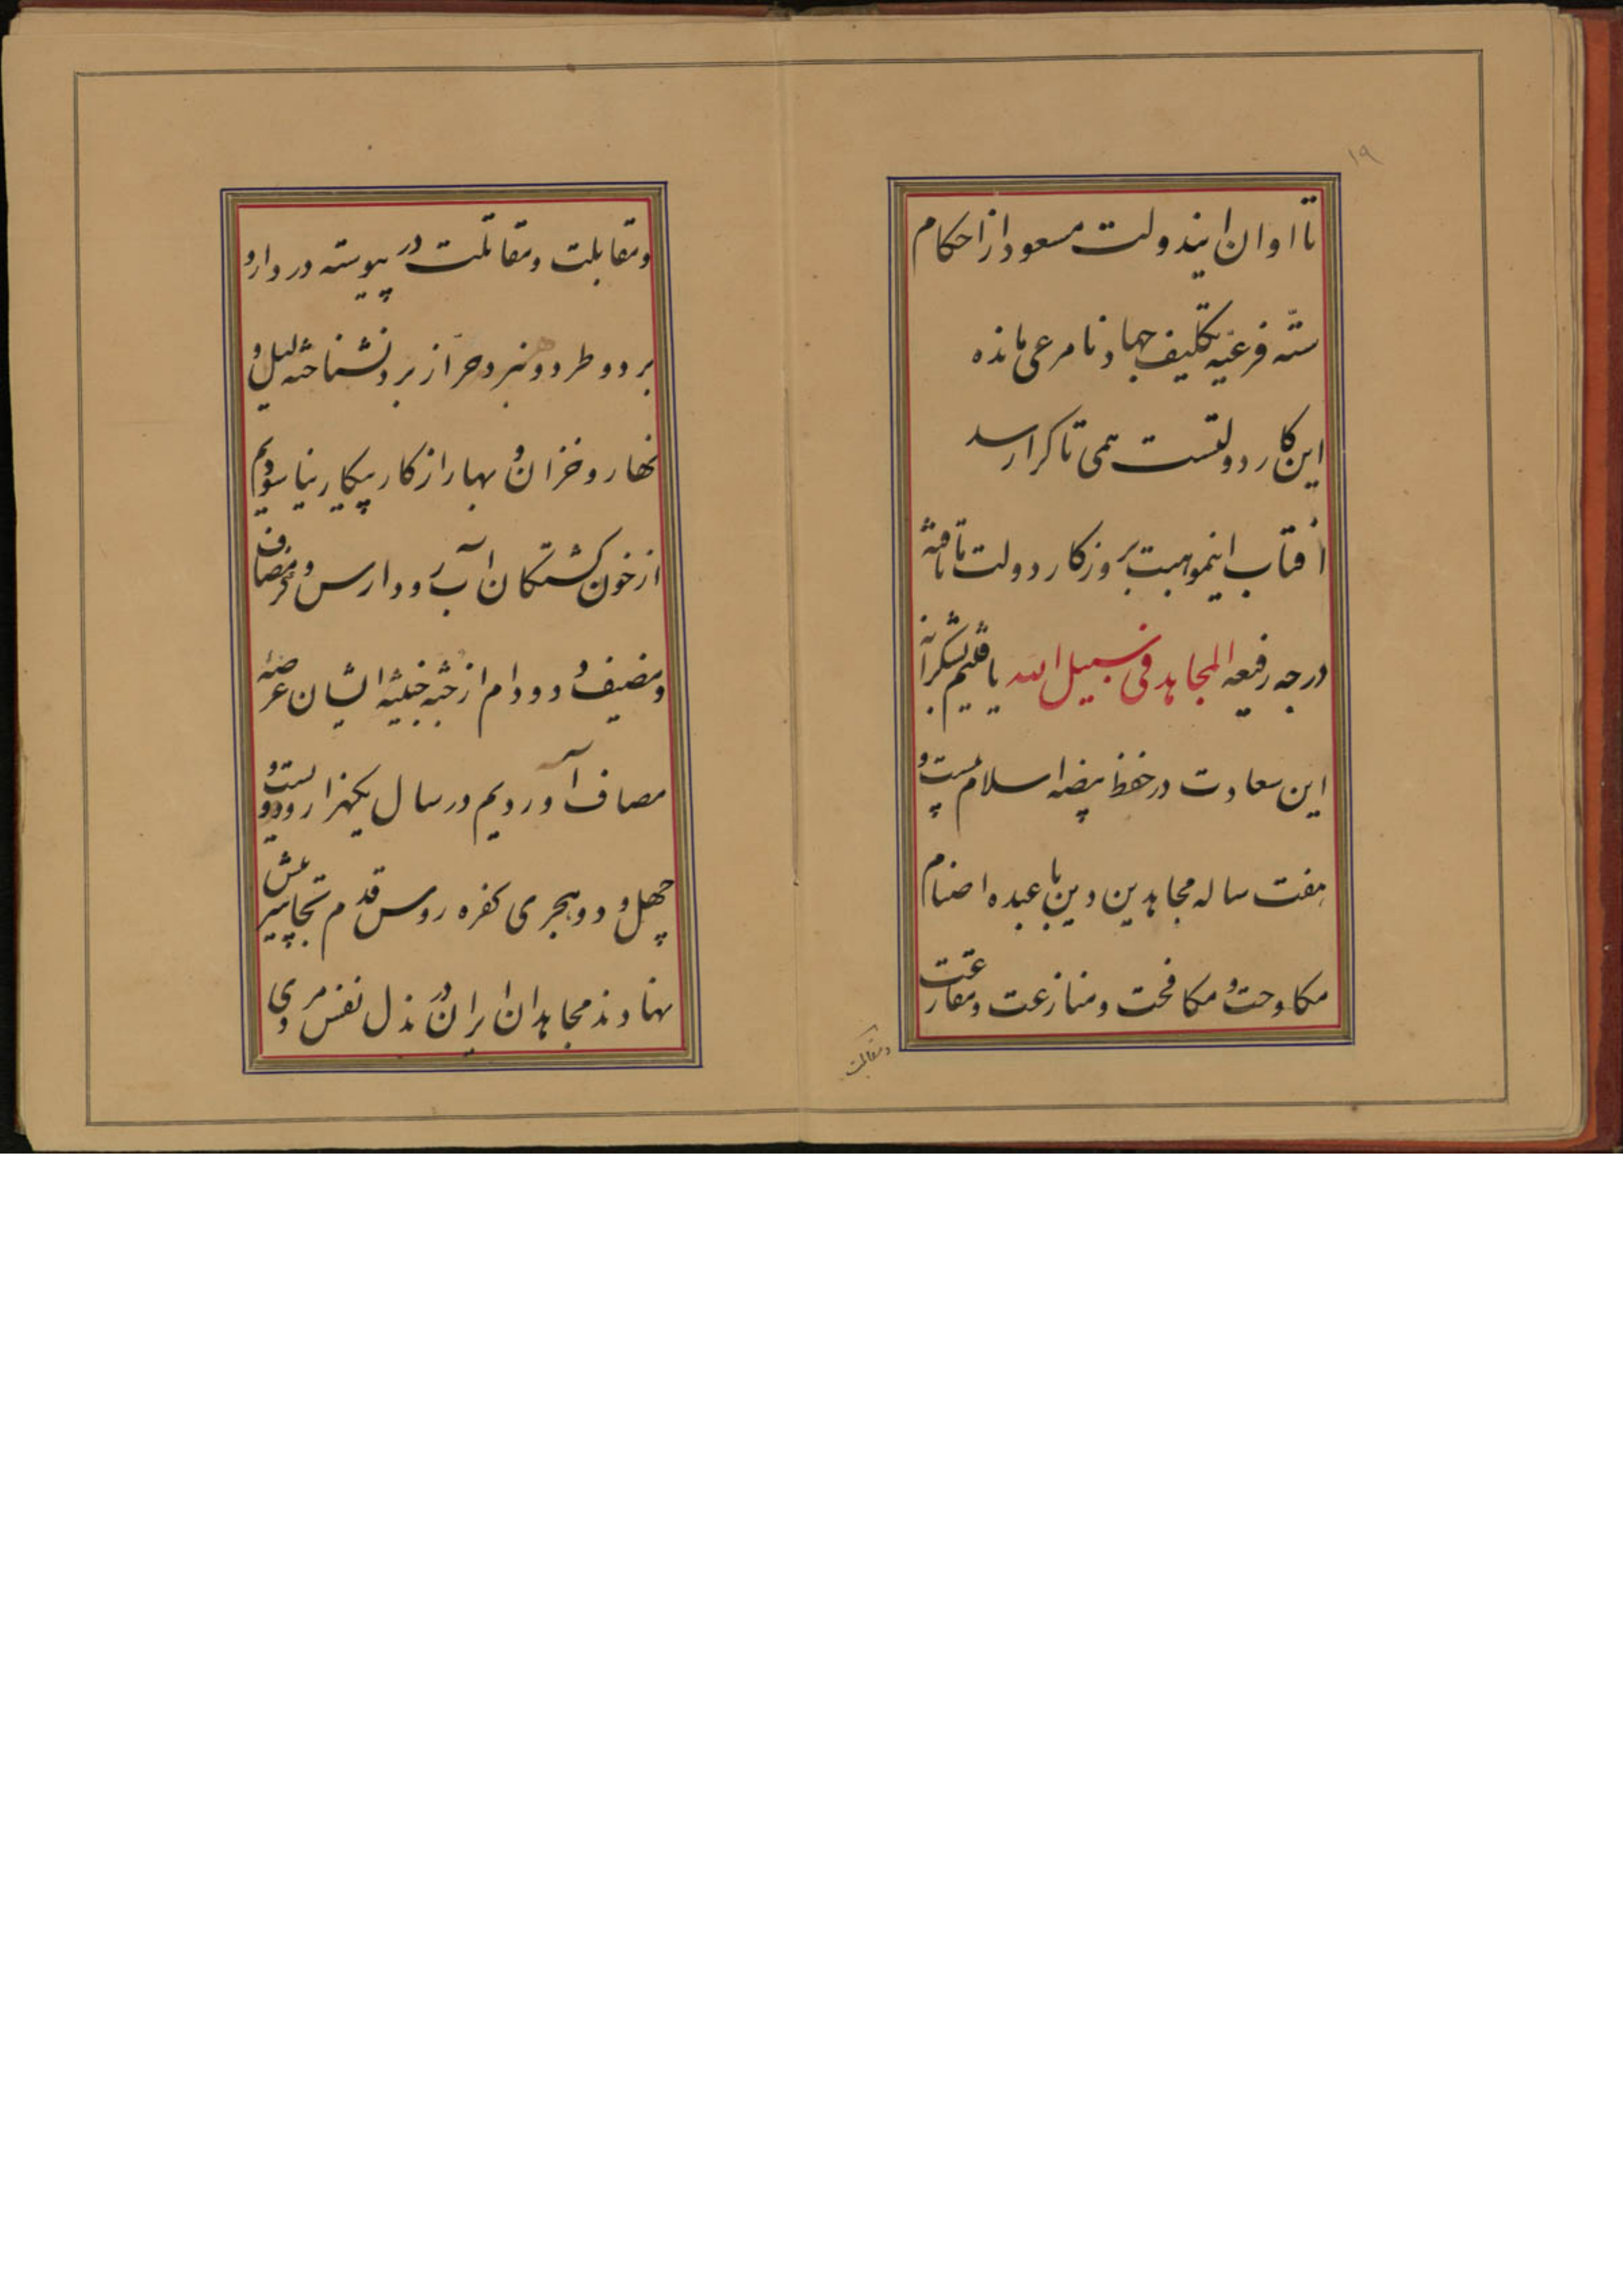 ۱۹
تا اوان ایندولت مسعود از احکام
ستّه فرعیّه تکلیف جهاد نامرعی مانده
این کار دولتست همی تا کرا رسد
آفتاب اینموهبت بر روزکار دولت ما تافته
درجه رفیعه المجاهد فی سبیل الله یافتیم بشکرانه
این سعادت در حفظ بیضه اسلام بیست و
هفت ساله مجاهدین دین با عبده اصنام
مکاوحت و مکافحت و منازعت و مقارعت
و مقابلت
و مقابلت و مقاتلت در پیوسته در دار و
برد و طرد و نبرد حرّ از برد نشناخته لیل و
نهار و خزان و بهار از کار پیکار نیاسودیم
از خون کشتکان آب رود ارس و در مصاف
و مضیف دد و دام از جثه خبیثه ایشان عرضه
مصاف آوردیم در سال یکهزار و دویست و
چهل و دو هجری کفره روس قدم تجاسر پیش
نهادند مجاهدان ایران در بذل نفس مردی و